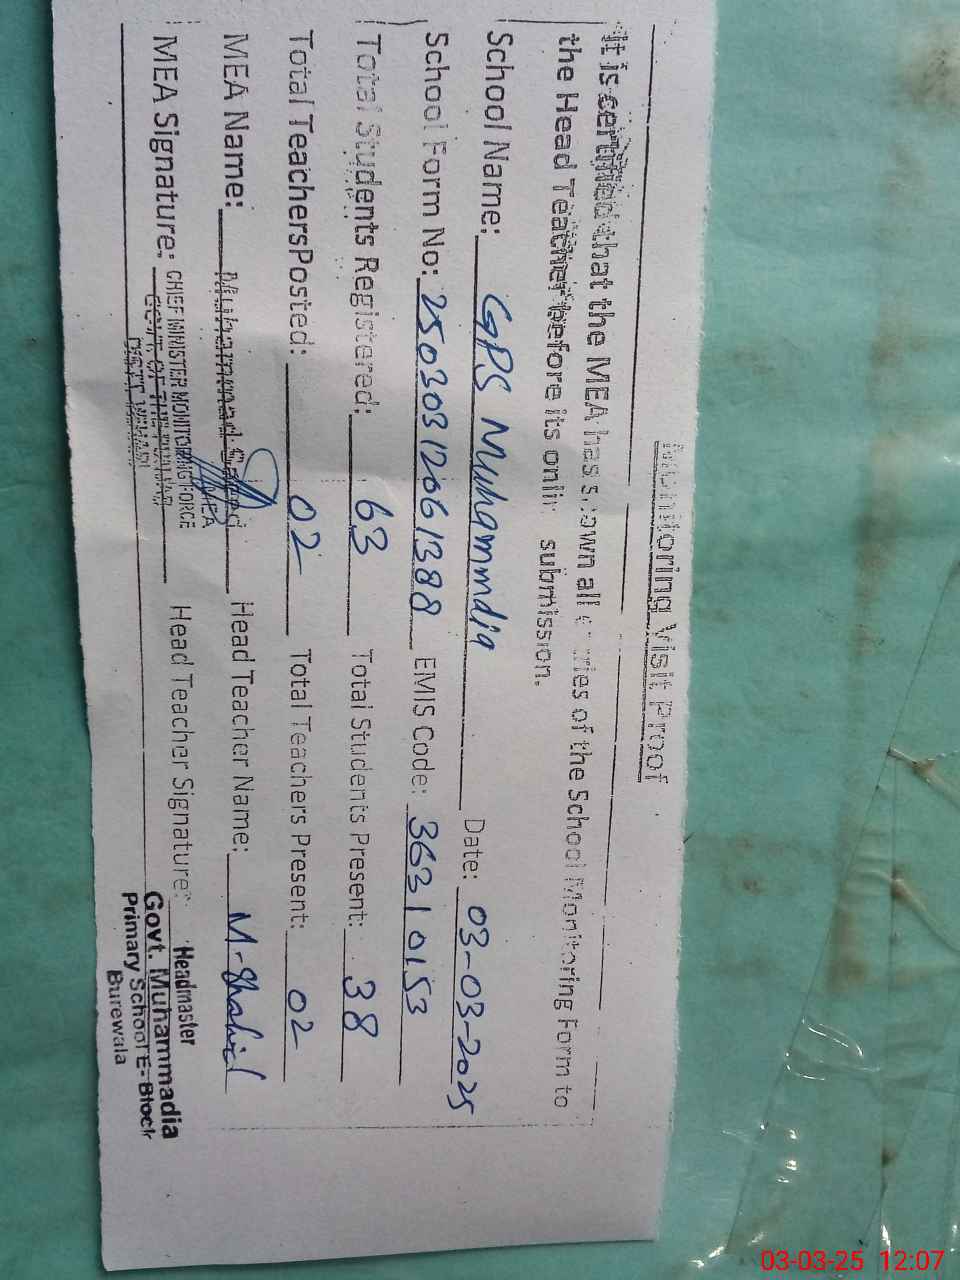 Monitoring Visit Proof
It is certified that the MEA has shown all entries of the School Monitoring Form to
the Head Teacher before its online submission.
School Name: GPS Muhammdia Date: 03-03-2025
School Form No: 25030312061388 EMIS Code: 36310153
Total Students Registered: 63 Total Students Present: 38
Total TeachersPosted: 02 Total Teachers Present: 02
MEA Name: Muhammad Saeed Head Teacher Name: M-Shahid
MEA
MEA Signature: Head Teacher Signature:
CHIEF MINISTER MONITORING FORCE
GOVT. OF THE PUNJAB
DISTT. VEHARI
Headmaster
Govt. Muhammadia
Primary School E-Block
Burewala
03-03-25 12:07